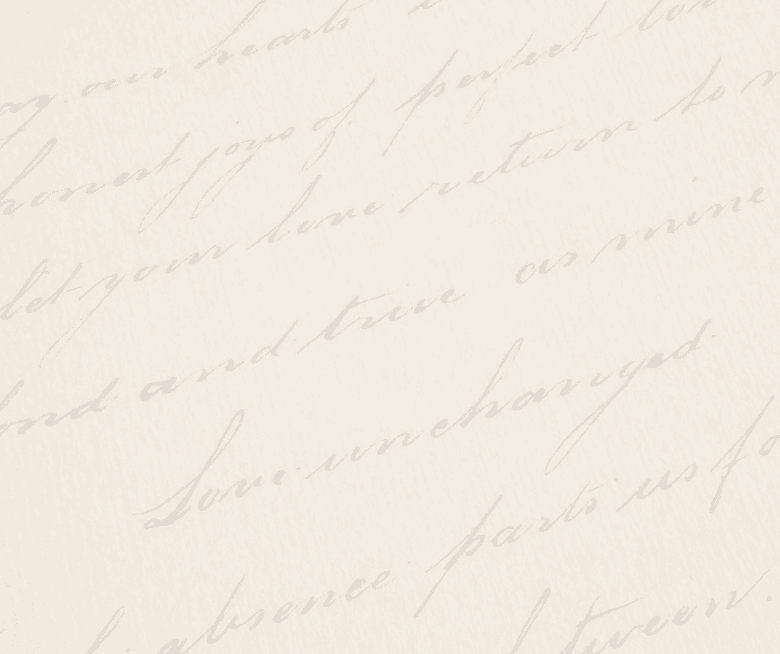 our hearts
honest joys of perfect
let your love return to
fond and true as mine
Love unchanged.
absence parts us